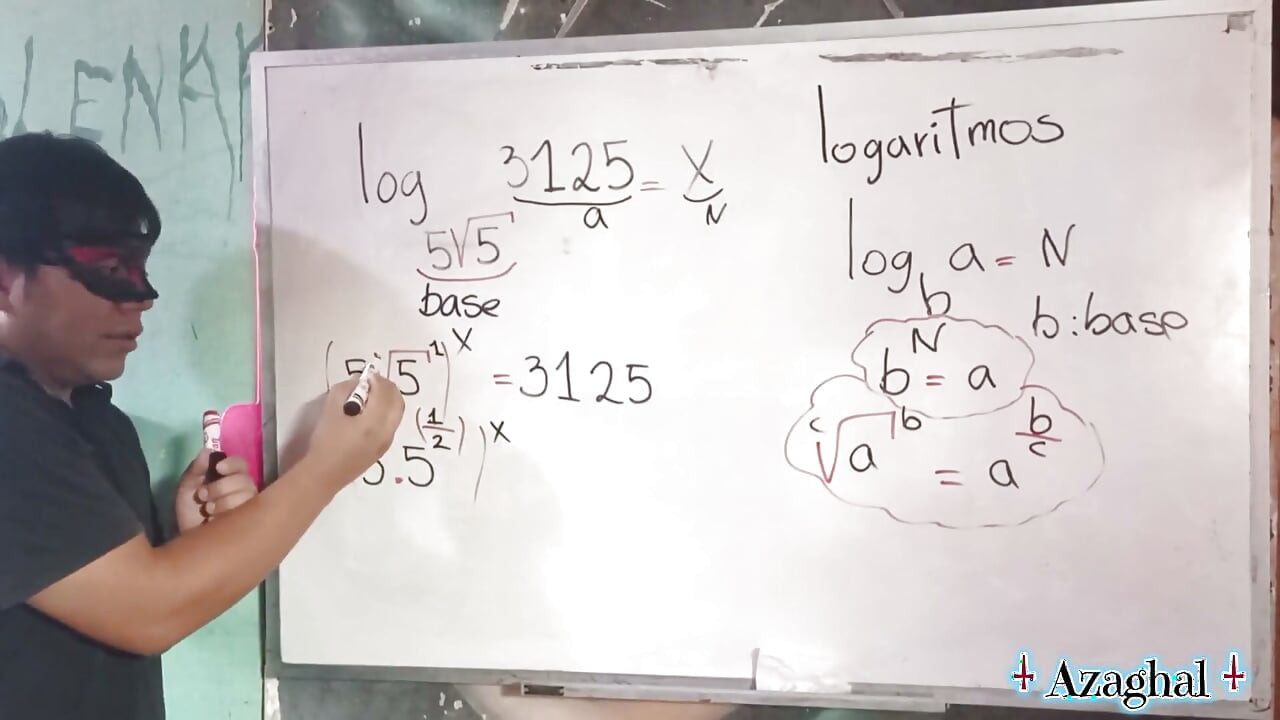 LENKA
log 3125 = X
a N
5√5
base
(5√5¹)ˣ = 3125
5.5^(1/2))ˣ
logaritmos
log_b a = N
b:base
bᴺ = a
ᶜ√aᵇ = a^(b/c)
Azaghal